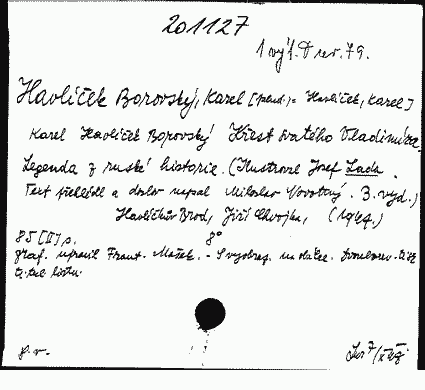 201127
1 výt. D rev. 79.
Havlíček Borovský, Karel [pseud.] = Havlíček, Karel]
Karel Havlíček Borovský Křest svatého Vladimíra.
Legenda z ruské historie. (Ilustroval Josef Lada.
Text přehlédl a doslov napsal Miloslav Novotný. 3. vyd.)
Havlíčkův Brod, Jiří Chvojka, (1947.)
85 [II] s. 8°
graf. upravil Frant. Mašek. - S vyobraz. na obálce.
g. r.